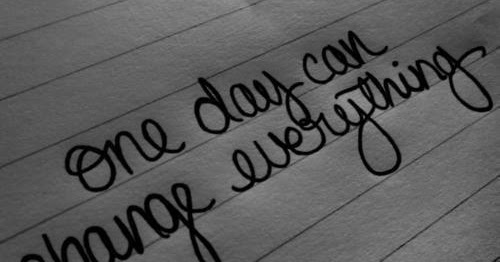 one day can
change everything